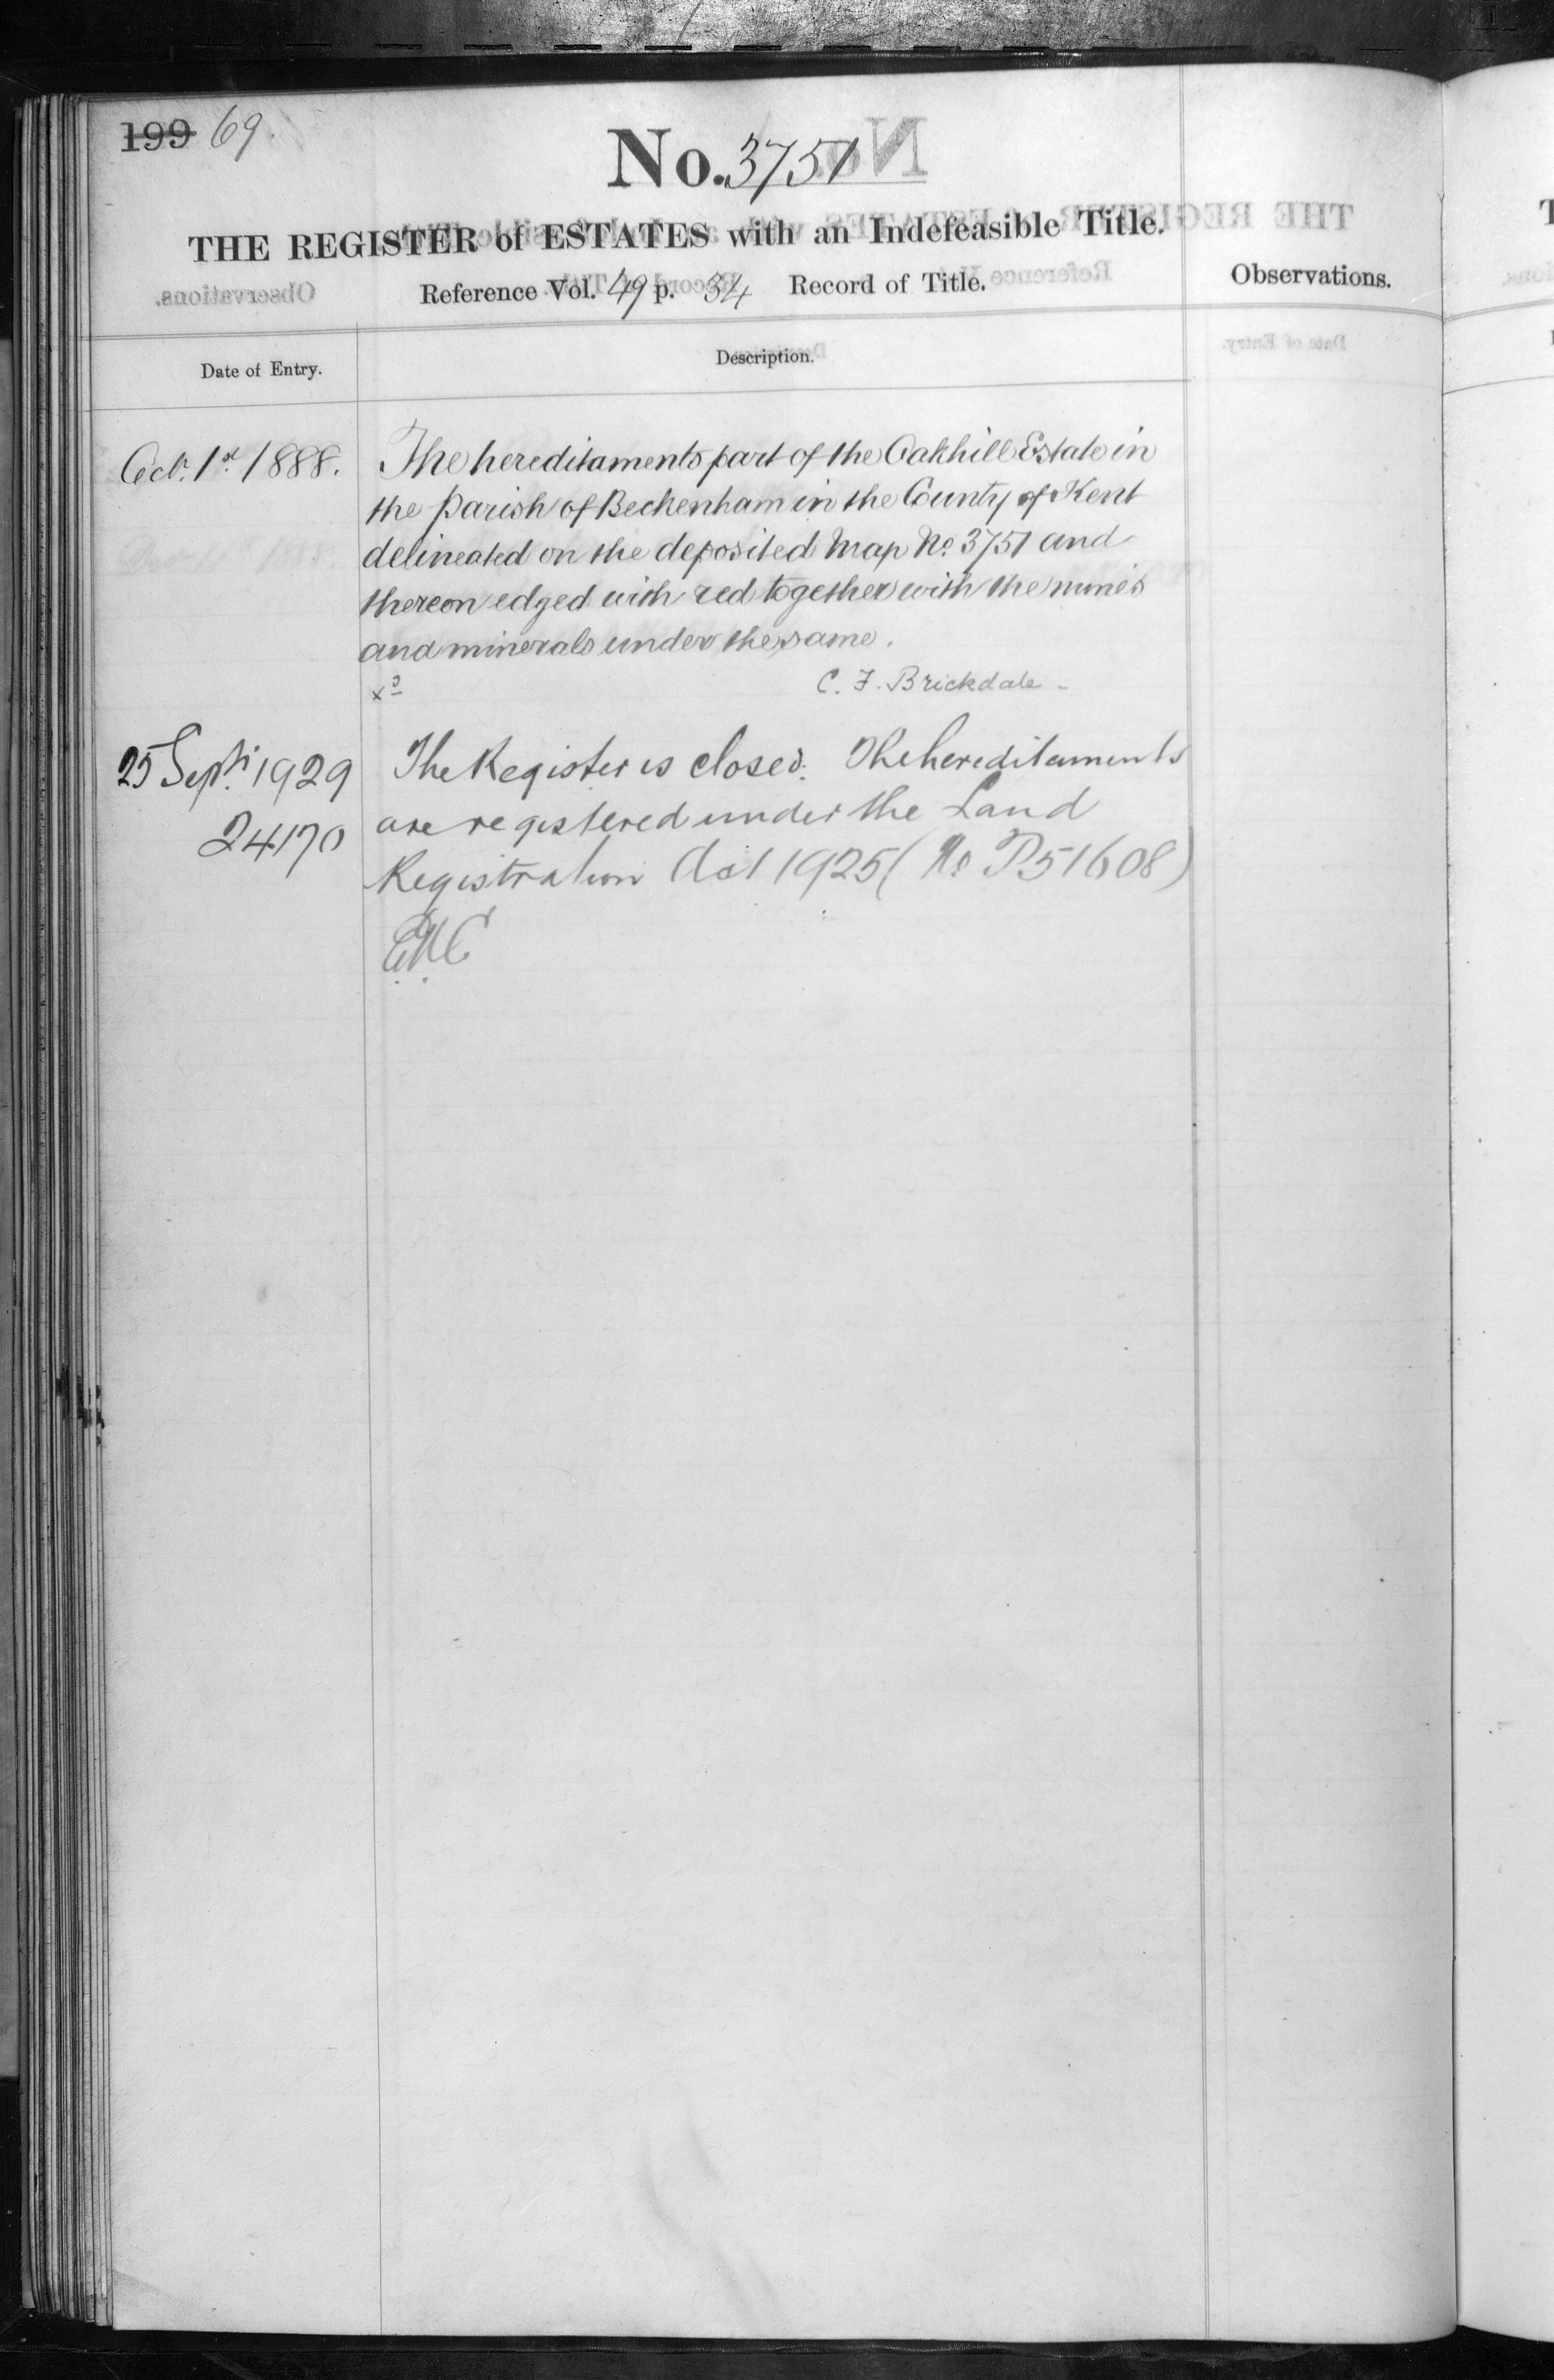 199 69.
No. 3751
THE REGISTER of ESTATES with an Indefeasible Title.
Reference Vol. 49 p. 34 Record of Title.
Observations.
Date of Entry.
Description.
Octr. 1st. 1888.
The hereditaments part of the Oakhill Estate in
the parish of Beckenham in the County of Kent
delineated on the deposited Map No. 3751 and
thereon edged with red together with the mines
and minerals under the same.
C. F. Brickdale
25 Sept. 1929
24170
The Register is closed. The hereditaments
are registered under the Land
Registration Act 1925 (No P51608)